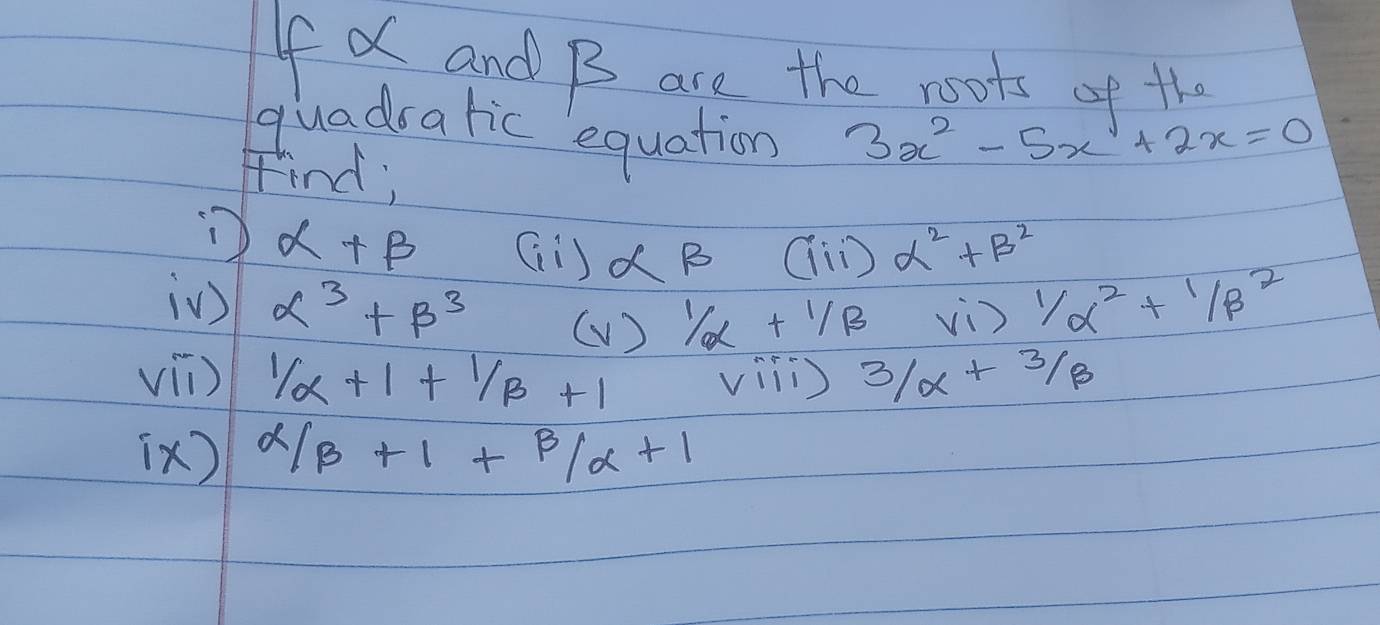 If α and β are the roots of the
quadratic equation 3x² - 5x + 2x = 0
Find;
i) α + β (ii) α β (iii) α² + β²
iv) α³ + β³ (v) 1/α + 1/β vi) 1/α² + 1/β²
vii) 1/α + 1 + 1/β + 1 viii) 3/α + 3/β
ix) α/β + 1 + β/α + 1